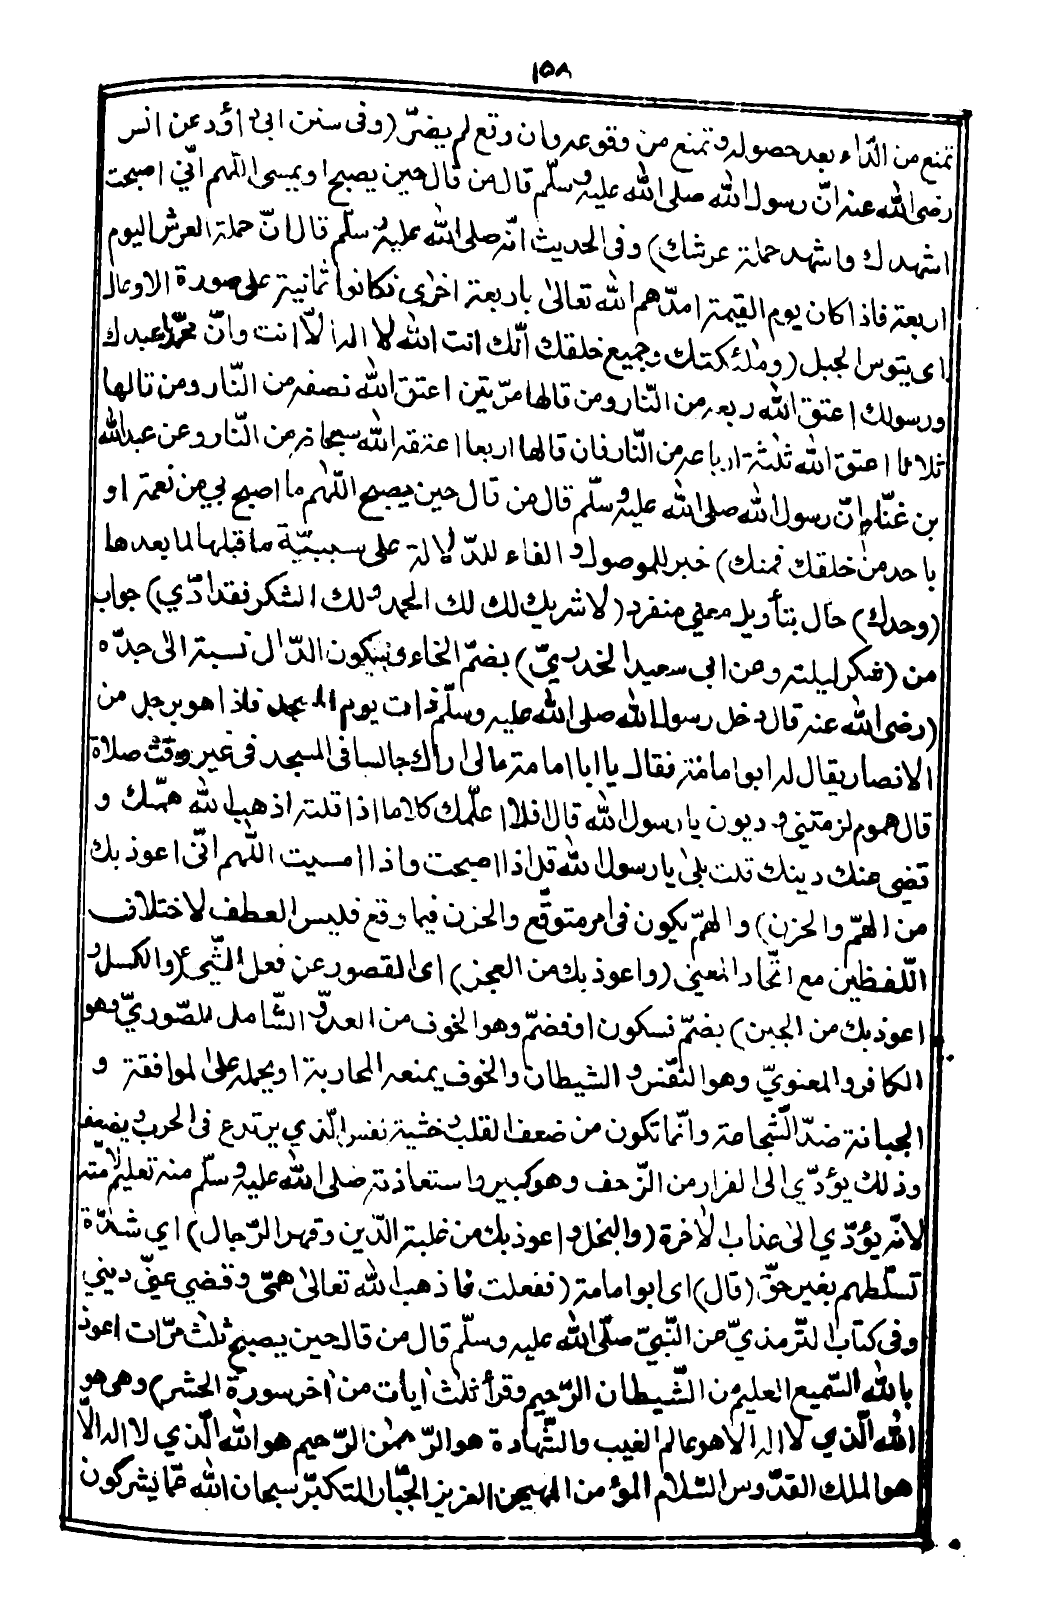 ١٥٨
تمنع من الدّاء بعد حصوله وتمنع من وقوعه وان وقع لم يضرّ (وفى سنن ابى داؤد عن انس
رضى الله عنه انّ رسول الله صلى الله عليه وسلّم قال من قال حين يصبح او يمسى اللّهم انّي اصبحت
اشهدك واشهد حملة عرشك) وفى الحديث انّه صلى الله عليه وسلّم قال انّ حملة العرش اليوم
اربعة فاذا كان يوم القيمة امدّهم الله تعالىٰ باربعة اخرٰى فكانوا ثمانية على صورة الاوعال
اى تيوس الجبل (وملٰئكتك وجميع خلقك انّك انت الله لا اله الّا انت وانّ محمّدا عبدك
ورسولك اعتق الله ربعه من النّار ومن قالها مرّتين اعتق الله نصفه من النّار ومن قالها
ثلاثا اعتق الله ثلٰثة ارباعه من النّار فان قالها اربعا اعتقه الله سبحانه من النّار وعن عبد الله
بن غنّام انّ رسول الله صلى الله عليه وسلّم قال من قال حين يصبح اللّهم ما اصبح بي من نعمة او
باحد من خلقك فمنك) خبر للموصول و الفاء للدّلالة على سببيّة ما قبلها لما بعدها
(وحدك) حال بتأويله بمعنى منفرد (لا شريك لك لك الحمد ولك الشكر فقد ادّي) جواب
من (شكر ليلته وعن ابى سعيد الخدريّ) بضمّ الخاء وبسكون الدّال نسبة الىٰ جدّه
(رضى الله عنه قال دخل رسول الله صلى الله عليه وسلّم ذات يوم المسجد فاذا هو برجل من
الانصار يقال له ابو امامة فقال يا ابا امامة مالى اراك جالسا فى المسجد فى غير وقت صلاة
قال هموم لزمتني و ديون يا رسول الله قال افلا اعلّمك كلاما اذا قلته اذهب الله همّك و
قضى عنك دينك قلت بلىٰ يا رسول الله قال اذا اصبحت واذا امسيت اللّهم انّى اعوذ بك
من الهمّ والحزن) والهمّ يكون فى امر متوقّع والحزن فيما وقع فليس العطف لاختلاف
اللّفظين مع اتّحاد المعنى (واعوذ بك من العجز) اى القصور عن فعل الشّىء (والكسل و
اعوذ بك من الجبن) بضمّ فسكون او فضمّ وهو الخوف من العدوّ الشّامل للصّوريّ وهو
الكافر والمعنويّ وهو النّفس و الشيطان والخوف يمنعه المحاربة او يحمله على الموافقة و
الجبانة ضدّ الشّجاعة وانّما تكون من ضعف القلب وخشية نفس الّذي يرتدع فى الحرب ويضعف
وذلك يؤدّي الى الفرار من الزّحف وهو كبير واستعاذته صلى الله عليه وسلّم منه تعليم لامّته
لانّه يؤدّي الىٰ عذاب الاٰخرة (والبخل و اعوذ بك من غلبة الدّين وقهر الرّجال) اي شدّة
تسلّطهم بغير حقّ (قال) اى ابو امامة (ففعلت فاذهب الله تعالىٰ همّى وقضي عنّي ديني
وفى كتاب التّرمذيّ عن النّبيّ صلّى الله عليه وسلّم قال من قال حين يصبح ثلٰث مرّات اعوذ
بالله السّميع العليم من الشّيطان الرّجيم وقرأ ثلٰث اٰيات من اٰخر سورة الحشر) وهى هو
الله الّذي لا اله الّا هو عالم الغيب والشّهادة هو الرّحمٰن الرّحيم هو الله الّذي لا اله الّا
هو الملك القدّوس السّلام المؤمن المهيمن العزيز الجبّار المتكبّر سبحان الله عمّا يشركون